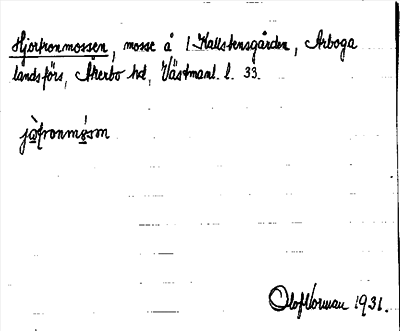 Hjortronmossen, mosse å 1 Kallstensgården, Arboga
landsförs, Åkerbo hd, Västmanl. l. 33.
Olof Norman 1931.